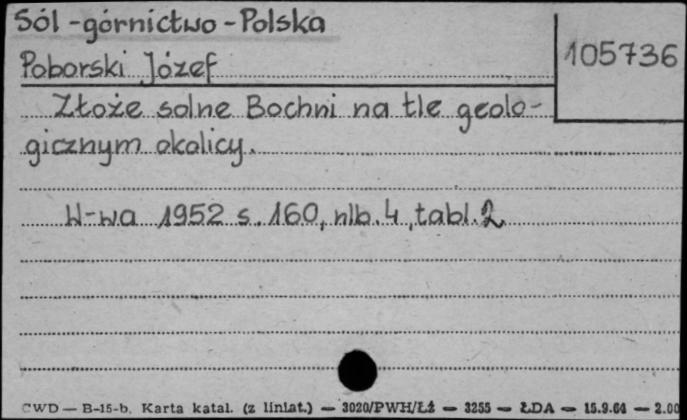 Sól - górnictwo - Polska
105736
Poborski Józef
Złoże solne Bochni na tle geolo-
gicznym okolicy.
W-wa 1952 s. 160, nlb. 4, tabl. 2
CWD — B-15-b. Karta katal. (z liniat.) — 3020/PWH/Łź — 3255 — ŁDA — 15.9.64 — 2.00